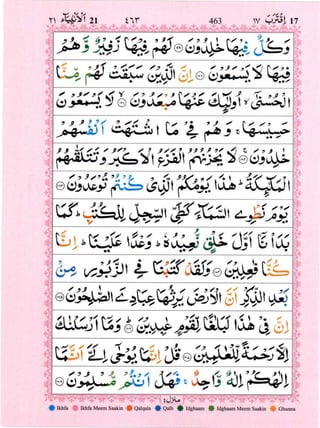 اِقْتَرَبَ ١٧ 17
463
٤٦٣
اَلْاَنْبِيَآء ٢١ 21
وَكُلٌّ فِيْهَا خٰلِدُوْنَ ۝ لَهُمْ فِيْهَا زَفِيْرٌ وَّهُمْ
فِيْهَا لَا يَسْمَعُوْنَ ۝ اِنَّ الَّذِيْنَ سَبَقَتْ لَهُمْ مِّنَّا
الْحُسْنٰٓى ۙ اُولٰٓئِكَ عَنْهَا مُبْعَدُوْنَ ۝ لَا يَسْمَعُوْنَ
حَسِيْسَهَا ۚ وَهُمْ فِيْ مَا اشْتَهَتْ اَنْفُسُهُمْ
خٰلِدُوْنَ ۝ لَا يَحْزُنُهُمُ الْفَزَعُ الْاَكْبَرُ وَتَتَلَقّٰىهُمُ
الْمَلٰٓئِكَةُ ۭ هٰذَا يَوْمُكُمُ الَّذِيْ كُنْتُمْ تُوْعَدُوْنَ ۝
يَوْمَ نَطْوِي السَّمَآءَ كَطَيِّ السِّجِلِّ لِلْكُتُبِ ۭ كَمَا
بَدَاْنَآ اَوَّلَ خَلْقٍ نُّعِيْدُهٗ ۭ وَعْدًا عَلَيْنَا ۭ اِنَّا
كُنَّا فٰعِلِيْنَ ۝ وَلَقَدْ كَتَبْنَا فِي الزَّبُوْرِ مِنْۢ
بَعْدِ الذِّكْرِ اَنَّ الْاَرْضَ يَرِثُهَا عِبَادِيَ الصّٰلِحُوْنَ ۝
اِنَّ فِيْ هٰذَا لَبَلٰغًا لِّقَوْمٍ عٰبِدِيْنَ ۝ وَمَآ اَرْسَلْنٰكَ
اِلَّا رَحْمَةً لِّلْعٰلَمِيْنَ ۝ قُلْ اِنَّمَا يُوْحٰٓى اِلَيَّ اَنَّمَآ
اِلٰهُكُمْ اِلٰهٌ وَّاحِدٌ ۚ فَهَلْ اَنْتُمْ مُّسْلِمُوْنَ ۝
Ikhfa Ikhfa Meem Saakin Qalqala Qalb Idghaam Idghaam Meem Saakin Ghunna